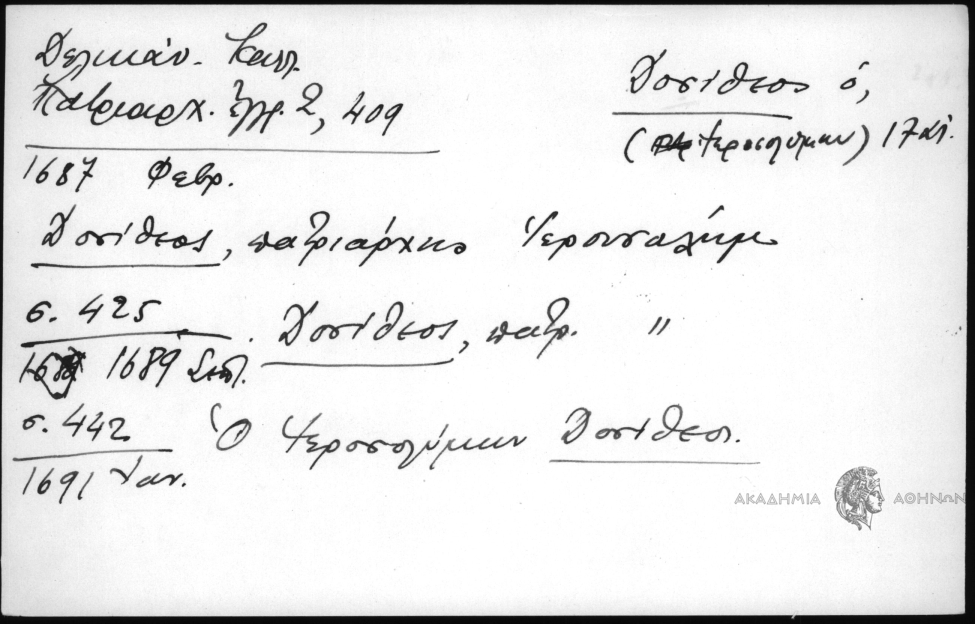 Δελικάν. Καλλ.
Πατριαρχ. ἔγγρ. 2, 409
1687 Φεβρ.
Δοσίθεος ὁ,
(Ἱεροσολύμων) 17 αἰ.
Δοσίθεος, πατριάρχης Ἱερουσαλήμ
σ. 425
1689 Σεπτ.
Δοσίθεος, πατρ. "
σ. 442
1691 Ἰαν.
Ὁ Ἱεροσολύμων Δοσίθεος.
ΑΚΑΔΗΜΙΑ ΑΘΗΝΩΝ